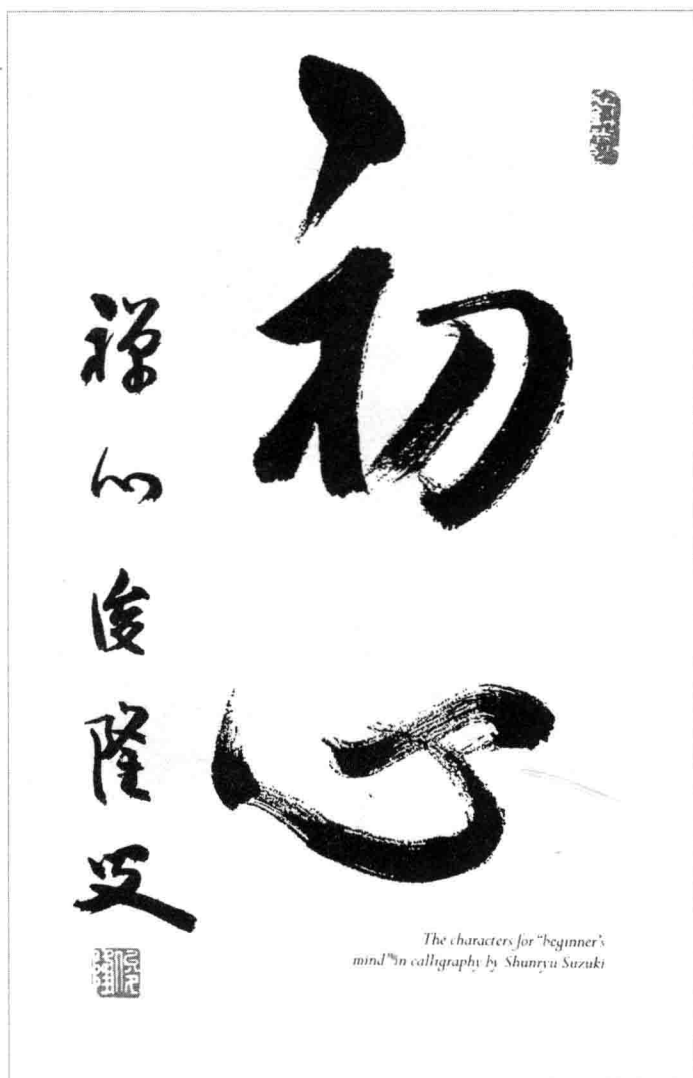 初心
禅心俊隆叟
The characters for “beginner’s
mind” in calligraphy by Shunryu Suzuki